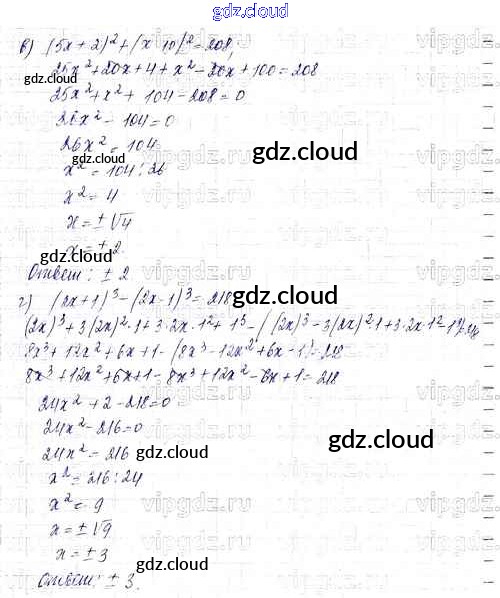 gdz.cloud
в) (5x+2)²+(x-10)²=208,
25x²+20x+4+x²-20x+100=208
gdz.cloud
25x²+x²+104-208=0
26x²-104=0
26x²=104
gdz.cloud
gdz.cloud
x²=104:26
x²=4
x=±√4
x=±2
Ответ: ± 2
г) (2x+1)³-(2x-1)³=218
gdz.cloud
(2x)³+3(2x)²·1+3·2x·1²+1³-((2x)³-3(2x)²·1+3·2x·1²-1³)=218
8x³+12x²+6x+1-(8x³-12x²+6x-1)=218
8x³+12x²+6x+1-8x³+12x²-6x+1=218
24x²+2-218=0
24x²-216=0
24x²=216
gdz.cloud
x²=216:24
x²=9
x=±√9
x=±3
gdz.cloud
Ответ: ± 3.
vipgdz.ru